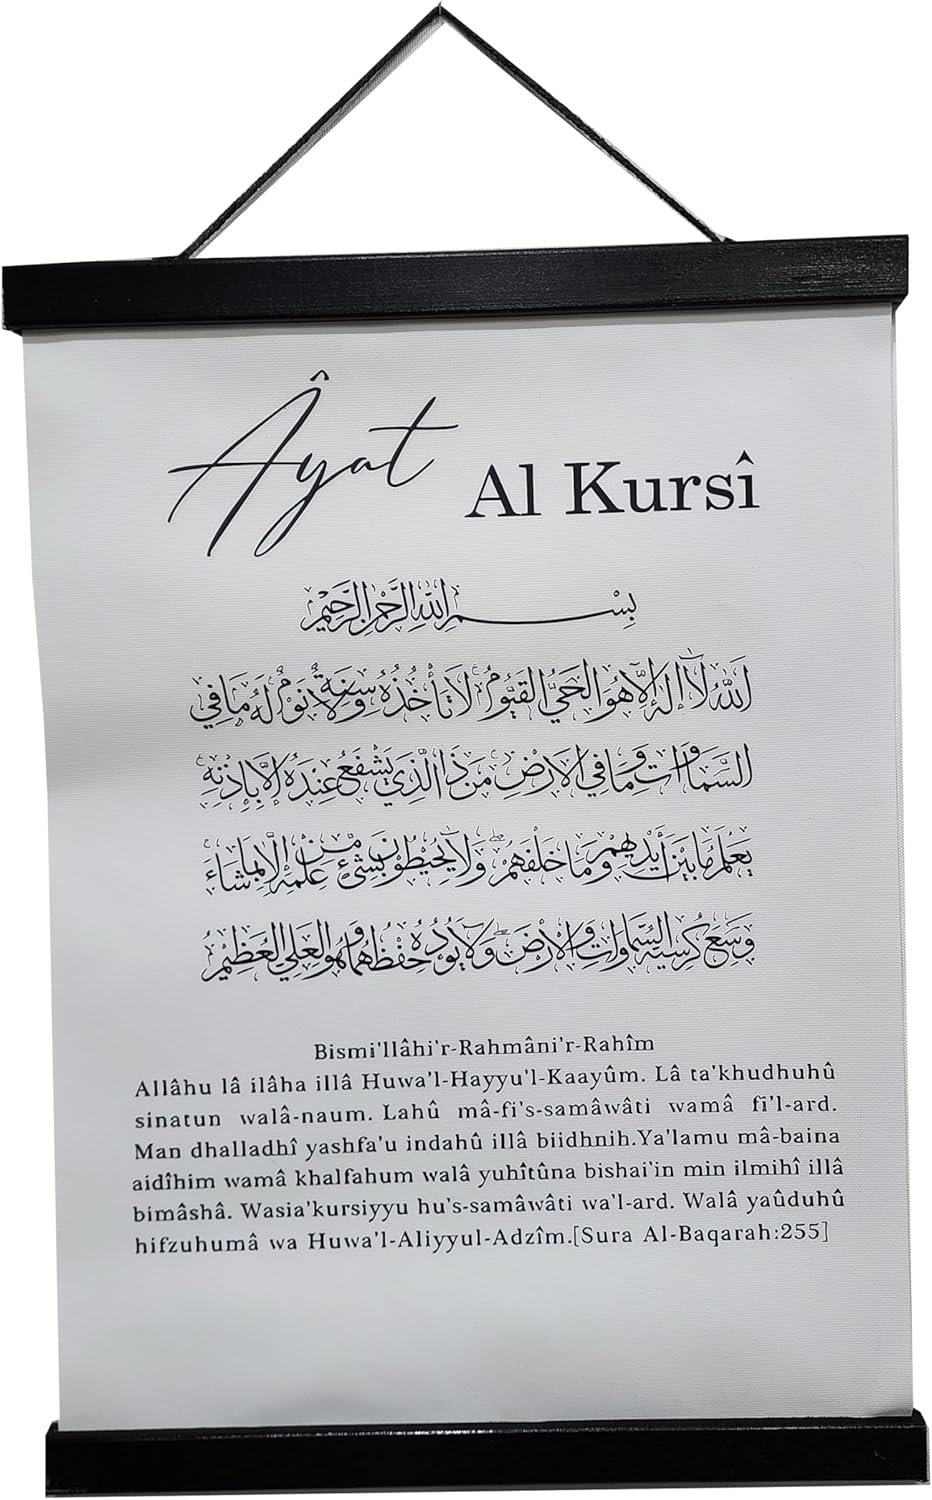 Âyat Al Kursî
بِسْمِ اللهِ الرَّحْمٰنِ الرَّحِيْمِ
اَللهُ لَآ اِلٰهَ اِلَّا هُوَ الْحَيُّ الْقَيُّوْمُ لَا تَأْخُذُهُ سِنَةٌ وَلَا نَوْمٌ لَهُ مَا فِي
السَّمَاوَاتِ وَمَا فِي الْاَرْضِ مَنْ ذَا الَّذِي يَشْفَعُ عِنْدَهُ اِلَّا بِاِذْنِهِ
يَعْلَمُ مَا بَيْنَ اَيْدِيهِمْ وَمَا خَلْفَهُمْ وَلَا يُحِيْطُوْنَ بِشَيْءٍ مِّنْ عِلْمِهِ اِلَّا بِمَا شَاءَ
وَسِعَ كُرْسِيُّهُ السَّمَاوَاتِ وَالْاَرْضَ وَلَا يَؤُدُهُ حِفْظُهُمَا وَهُوَ الْعَلِيُّ الْعَظِيْمُ
Bismi'llâhi'r-Rahmâni'r-Rahîm
Allâhu lâ ilâha illâ Huwa'l-Hayyu'l-Kaayûm. Lâ ta'khudhuhû
sinatun walâ-naum. Lahû mâ-fi's-samâwâti wamâ fi'l-ard.
Man dhalladhî yashfa'u indahû illâ biidhnih.Ya'lamu mâ-baina
aidîhim wamâ khalfahum walâ yuhîtûna bishai'in min ilmihî illâ
bimâshâ. Wasia'kursiyyu hu's-samâwâti wa'l-ard. Walâ yaûduhû
hifzuhumâ wa Huwa'l-Aliyyul-Adzîm.[Sura Al-Baqarah:255]